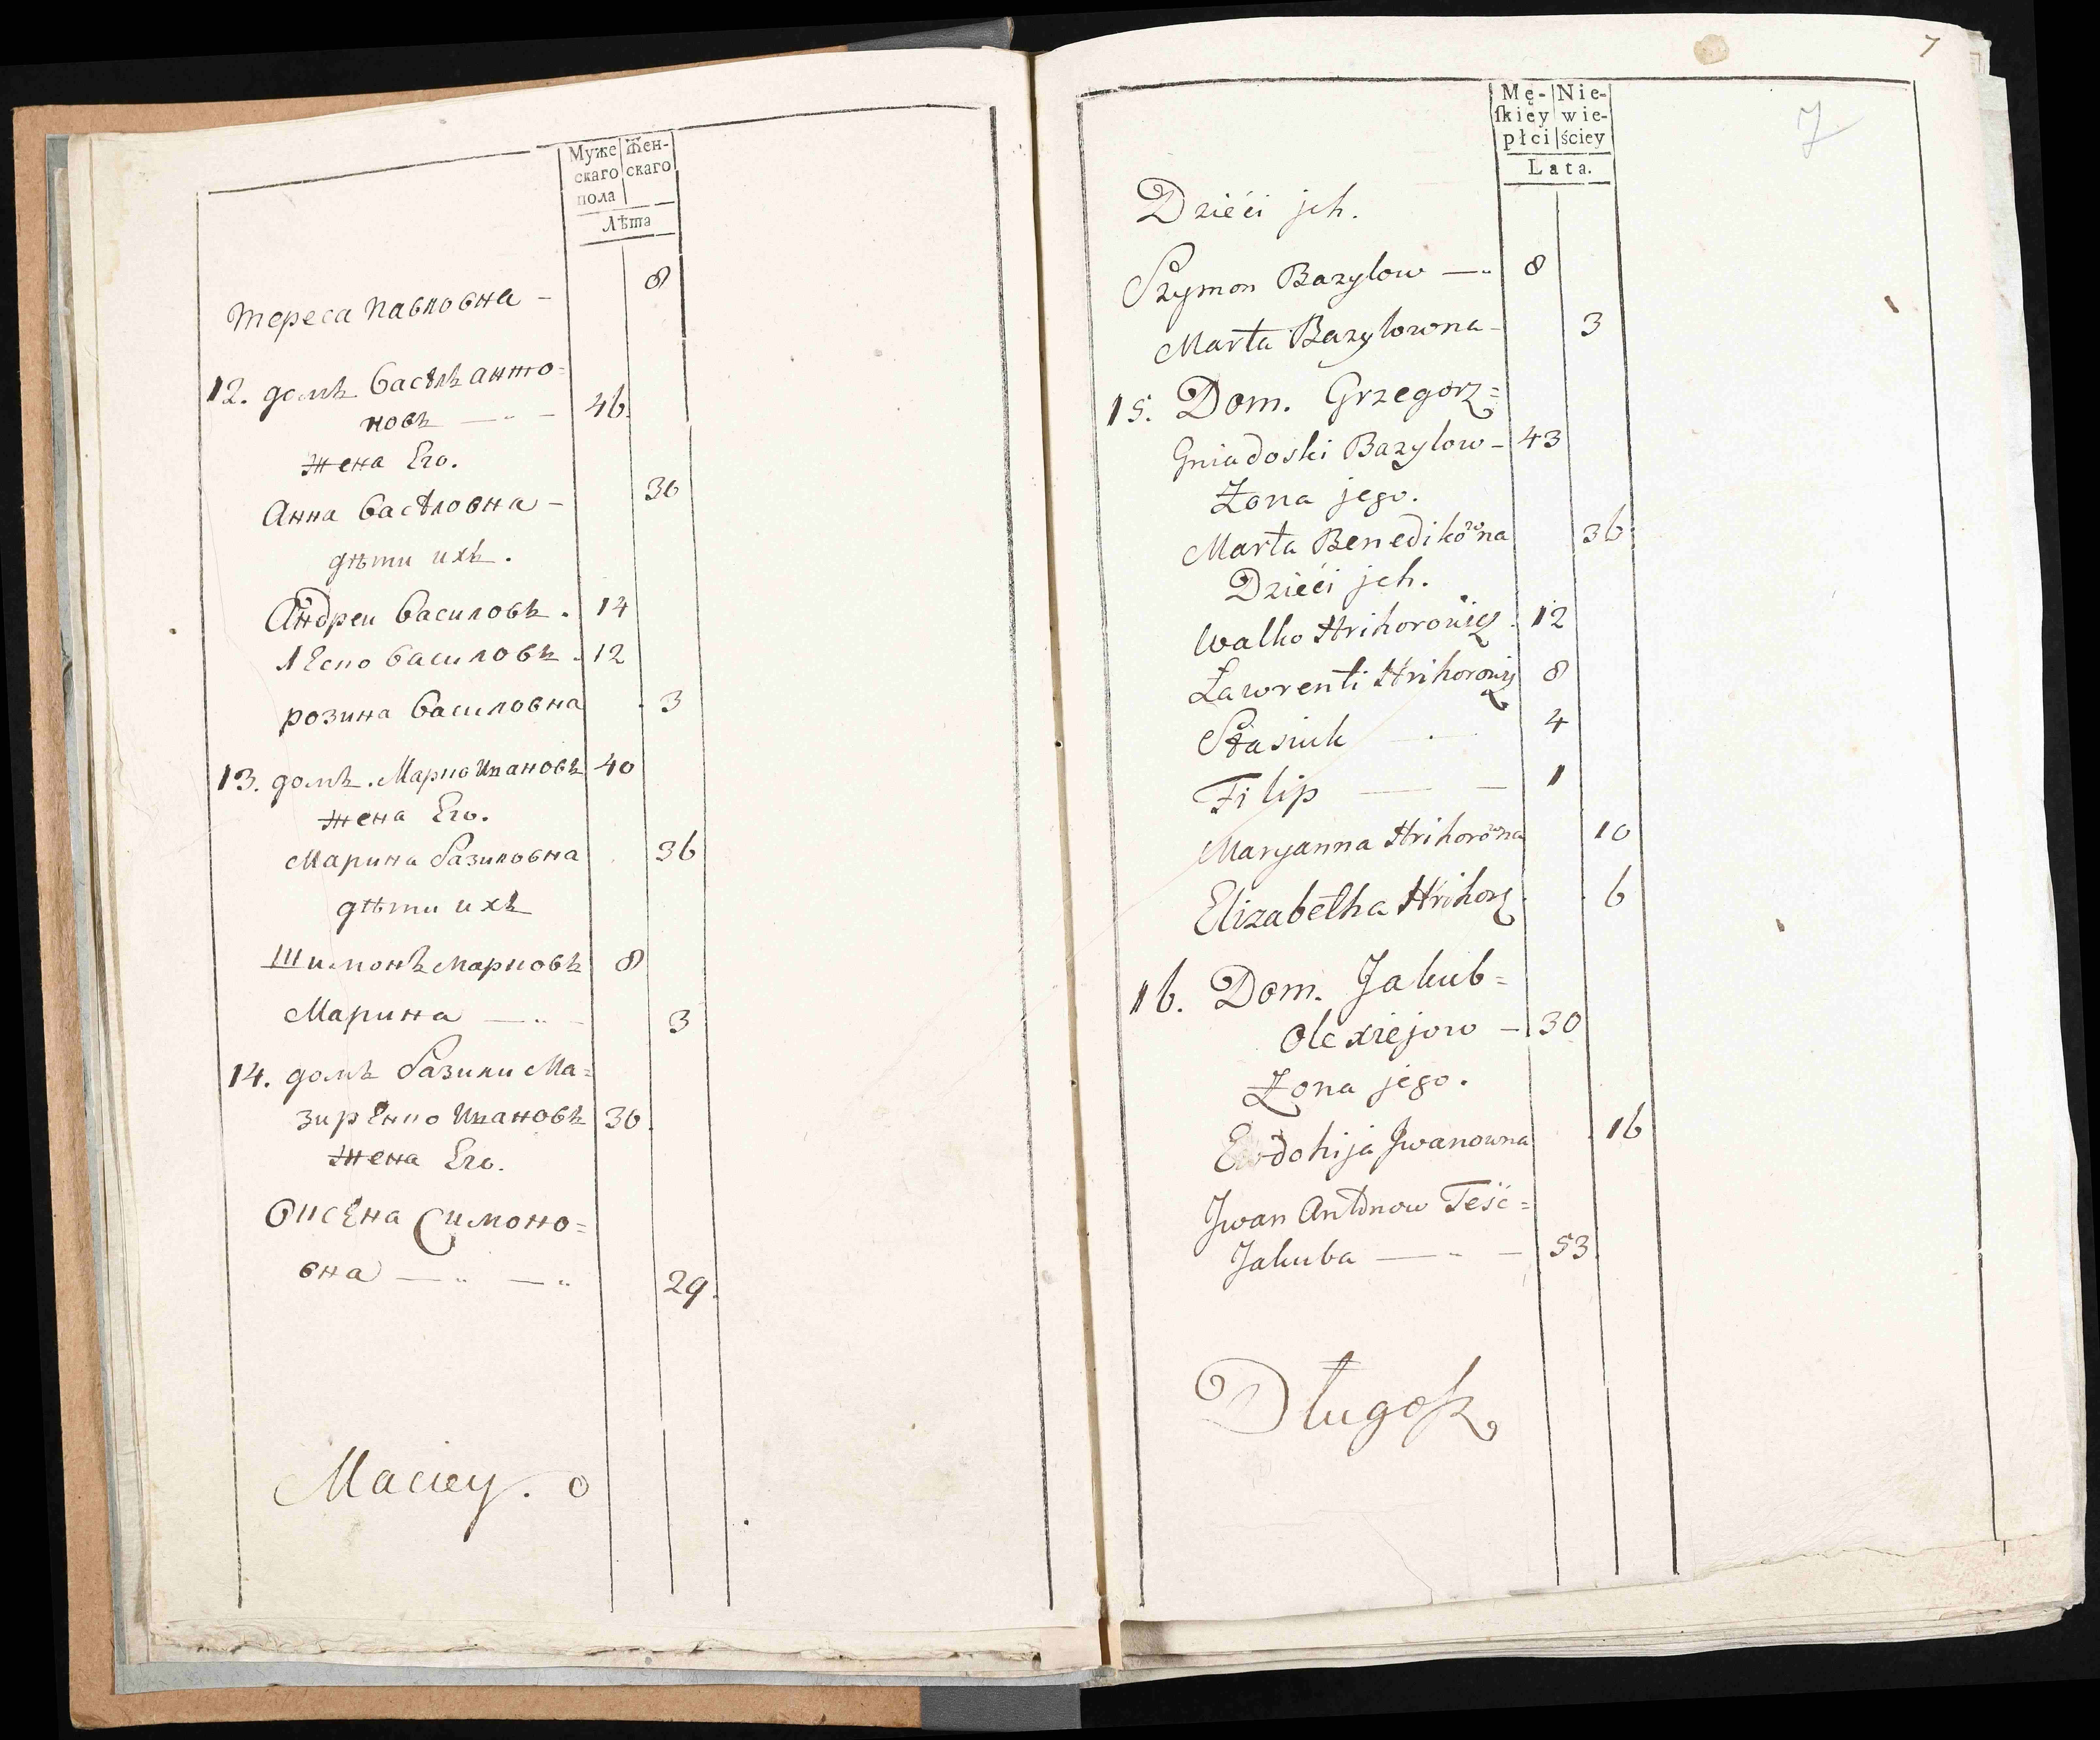 Муже Жен-
скаго скаго
пола
Лѣта
Тереса павловна - 8
12. домъ васѣль анто=
новъ — 46.
жена Его.
Анна васѣловна - 30
дѣти ихъ.
Андреи василовъ. 14
лЕско василовъ. 12
розина василовна 3
13. домъ. Марко Ивановъ 40
жена Его.
Марина базиловна 36
дѣти ихъ
Шимонъ марковъ 8
Марина — 3
14. домъ базили Ма=
зирЕнко Ивановъ 30.
жена Его.
ОксЕна Симоно=
вна — — 29.
Maciey. o
7
7
Mę- Nie-
ſkiey wie-
płci ściey
Lata.
Dzieći jch.
Szymon Bazylow — 8
Marta Bazylowna - 3
15. Dom. Grzegorz=
Gniadoski Bazylow - 43
Żona jego.
Marta Benedikowna 36.
Dzieći jch.
Walko Hrihorowicz. 12
Ławrenti Hrihorowicz 8
Stasiuk — 4
Filip — - 1
Maryanna Hrihorowna 10
Elizabetha Hrihorz. 6
16. Dom. Jakub=
Olexiejow - 30
Żona jego.
Ewdokija Jwanowna 16
Jwan Antonow Teść=
Jakuba — - 53.
Długosz